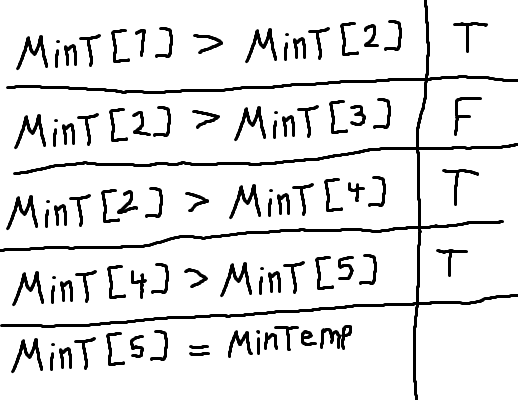 MinT[1] > MinT[2] T
MinT[2] > MinT[3] F
MinT[2] > MinT[4] T
MinT[4] > MinT[5] T
MinT[5] = MinTemp